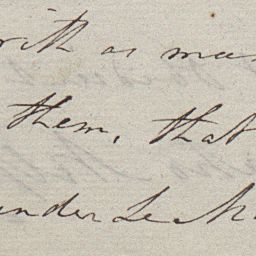 with as man
them, that
under Le Ma